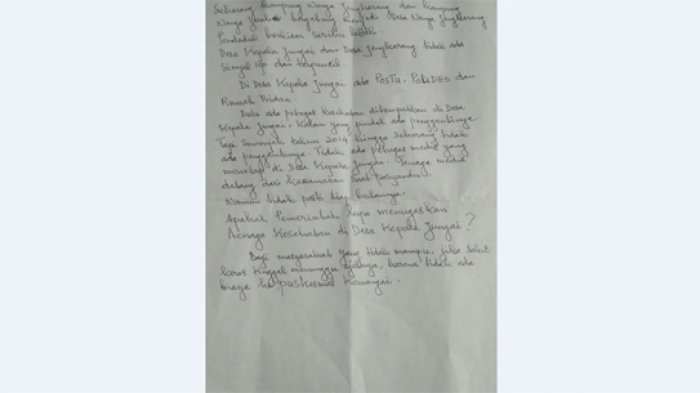 Sekarang kampung Nanga Jengkarang dan kampung
Nanga bergabung menjadi Desa Nanga Jengkarang
Penduduk berkisar seribu lebih.
Desa Kepala Jungai dan Desa Jengkarang tidak ada
Sinyal Hp dan terpencil
Di Desa Kepala Jungai ada Postu, Polindes dan
Rumah Bidan.
Dulu ada petugas kesehatan ditempatkan di Desa
Kepala Jungai, Kalau yang pindah ada penggantinya.
Tapi Semenjak tahun 2014 hingga sekarang tidak
ada penggantinya. Tidak ada petugas medis yang
menetap di Desa Kepala Jungai. Tenaga medis
datang dari kecamatan Saat posyandu.
Namun tidak pasti tiap bulannya.
Apakah Pemerintah lupa menugaskan
Tenaga Kesehatan di Desa Kepala Jungai?
Bagi masyarakat yang tidak mampu, jika sakit
keras tinggal menunggu ajalnya, karena tidak ada
biaya ke puskesmas